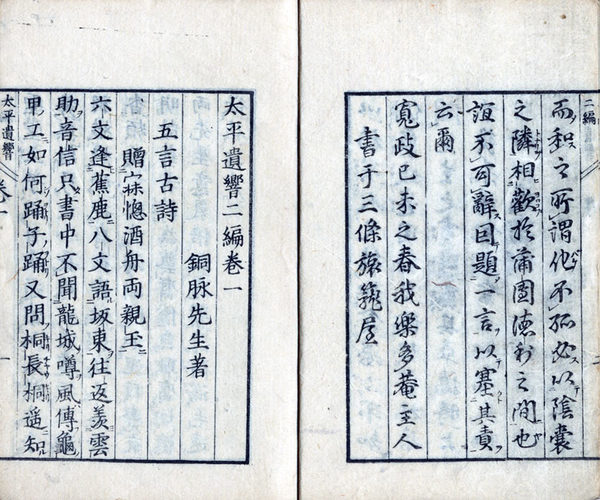 二編
而和之所謂他不孤必以陰嚢
之隣相歡於蒲團徳利之間也
誼不可辭因題一言以塞其責
云爾
寛政己未之春我樂多菴主人
書于三條旅籠屋
太平遺響二編卷一
銅脉先生著
五言古詩
贈寐惚酒舟両親玉
六文逢蕉鹿八文語坂東往返羨雲
助音信只書中不聞龍城噂風傳龜
甲工如何踊子踊又問桐長桐遥知
太平遺響
卷一